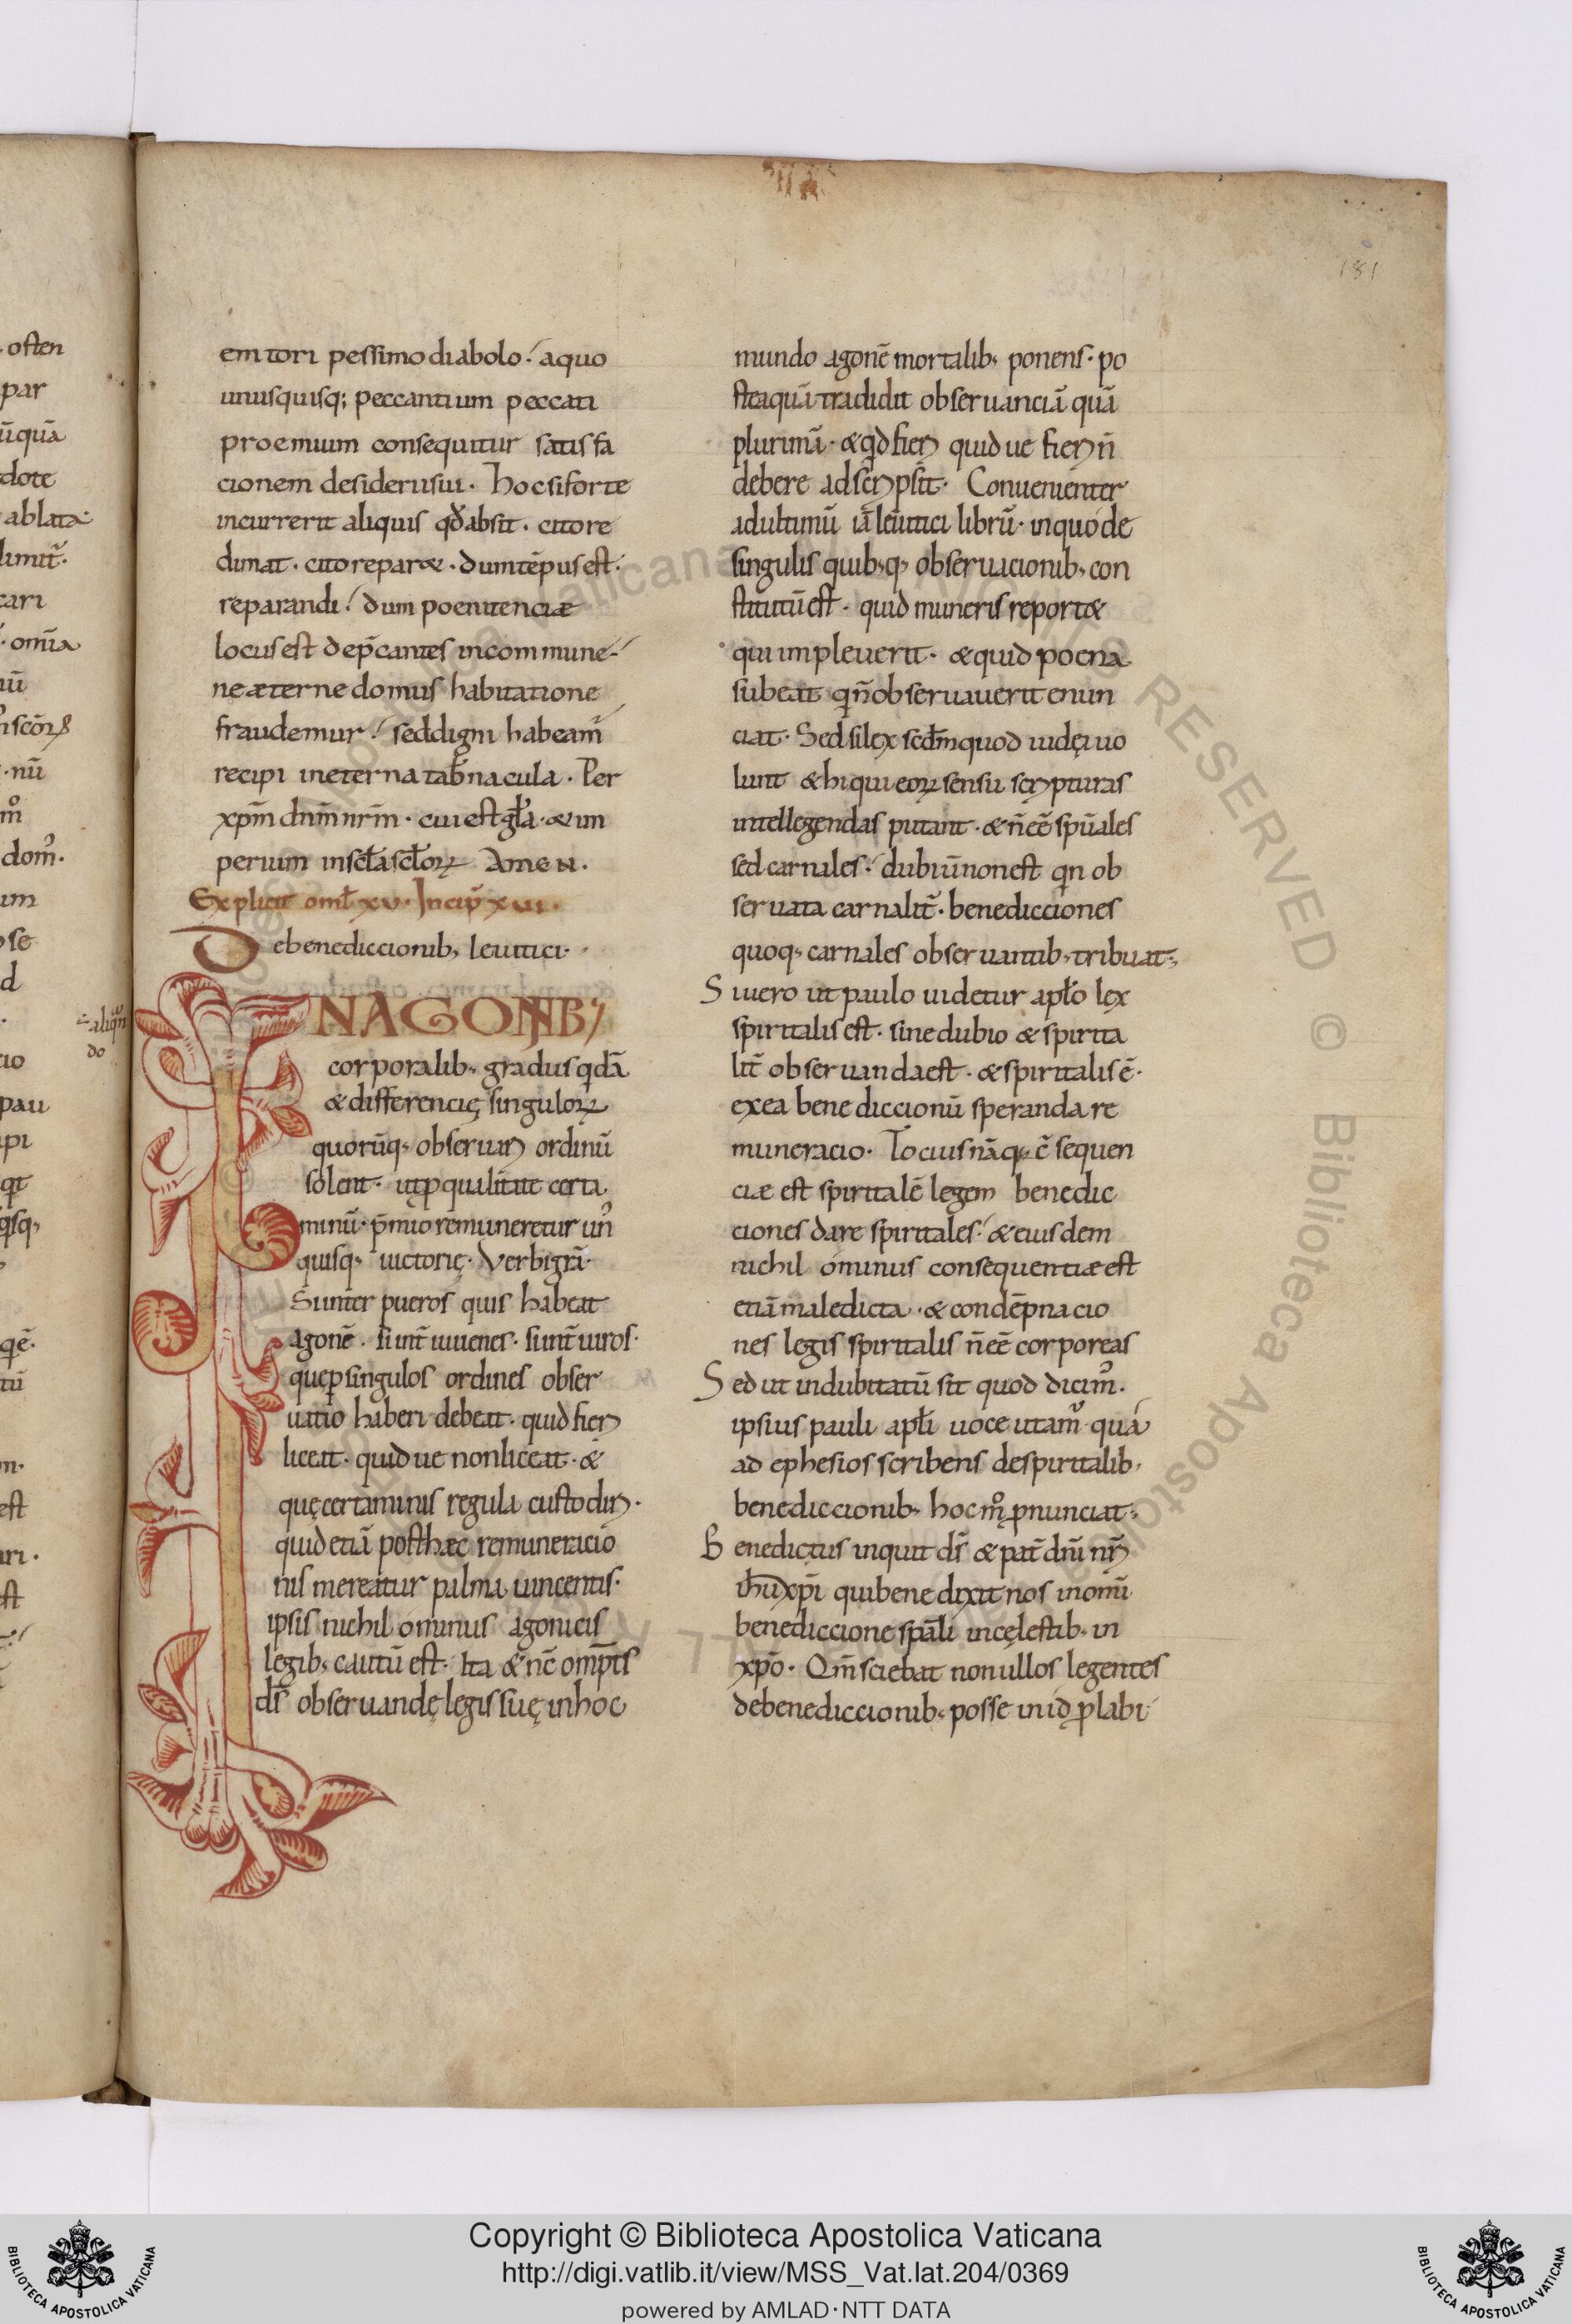 181
emtori pessimo diabolo. a quo
unusquisq; peccantium peccati
proemium consequitur satisfa
cionem desiderii sui. Hoc si forte
incurrerit aliquis qd̄ absit. cito re
dimat. cito reparet. dum tēpus est.
reparandi. dum poenitenciæ
locus est dep̄cantes in commune
ne æterne domus habitatione
fraudemur. sed digni habeam̄
recipi in eterna tab̄nacula. Per
xp̄m dn̄m nr̄m. cui est gl̄a. & im
perium in scl̄a scl̄oꝝ Amen.
Explicit oml̄ xv. Incip̄ xvi.
De benediccionib; leuitici.
IN AGONIB;
corporalib; gradus qdā
& differencię singuloꝝ
quorūq; obseruari ordinū
solent. ut ꝑ qualitate certa
minū. p̄mio remuneretur un᾽
quisq; uictorię. Verbi grā.
Si int̄ pueros quis habeat
agonē. si int̄ iuuenes. si int̄ uiros.
que ꝑ singulos ordines obser
uatio haberi debeat. quid fieri
liceat. quid ue non liceat. &
quę certaminis regula custodiri.
quid etiā post hæc remuneracio
nis mereatur palma uincentis.
ipsis nichil ominus agonicis
legib; cautū est. Ita & nc̄ omp̄tis
ds̄ obseruandę legis suę in hoc
mundo agonē mortalib; ponens. po
steaquā tradidit obseruanciā quā
plurimā. & qd fieri quid ue fieri n̄
debere adscripsit. Conuenienter
ad ultimū iā leuitici librū. in quo de
singulis quib;q; obseruacionib; con
stitutū est. quid muneris reportet
qui impleuerit. & quid poena
subeat qi n̄ obseruauerit enun
ciat. Sed si lex scdm̄ quod iudęi uo
lunt & hi qui eoꝝ sensu scripturas
intellegendas putant. & n̄ eē spū̄ales
sed carnales. dubiū non est qin ob
seruata carnalit̄. benedicciones
quoq; carnales obseruantib; tribuat;
Si uero ut paulo uidetur apl̄o lex
spiritalis est. sine dubio & spirita
lit̄ obseruanda est. & spiritalis ē.
ex ea benediccionū speranda re
muneracio. Tocius nāq; c̄sequen
ciæ est spiritalē legem benedic
ciones dare spiritales. & eiusdem
nichil óminus consequentiæ est
etiā maledicta. & condēpnacio
nes legis spiritalis n̄ eē corporeas
Sed ut indubitatū sit quod dicim᾽.
ipsius pauli apl̄i uoce utam᾽ quá
ad ephesios scribens de spiritalib;
benediccionib; hoc m̊ ꝓnunciat;
Benedictus inquit ds̄ & pat̄ dn̄i nr̄i
ih̄u xp̄i qui benedixit nos in omī
benediccione spāl̄i in cęlestib; in
xp̄o. Qm̄ sciebat nonullos legentes
de benediccionib; posse in id ꝓlabi
Copyright © Biblioteca Apostolica Vaticana
http://digi.vatlib.it/view/MSS_Vat.lat.204/0369
powered by AMLAD·NTT DATA
BIBLIOTECA APOSTOLICA VATICANA
BIBLIOTECA APOSTOLICA VATICANA